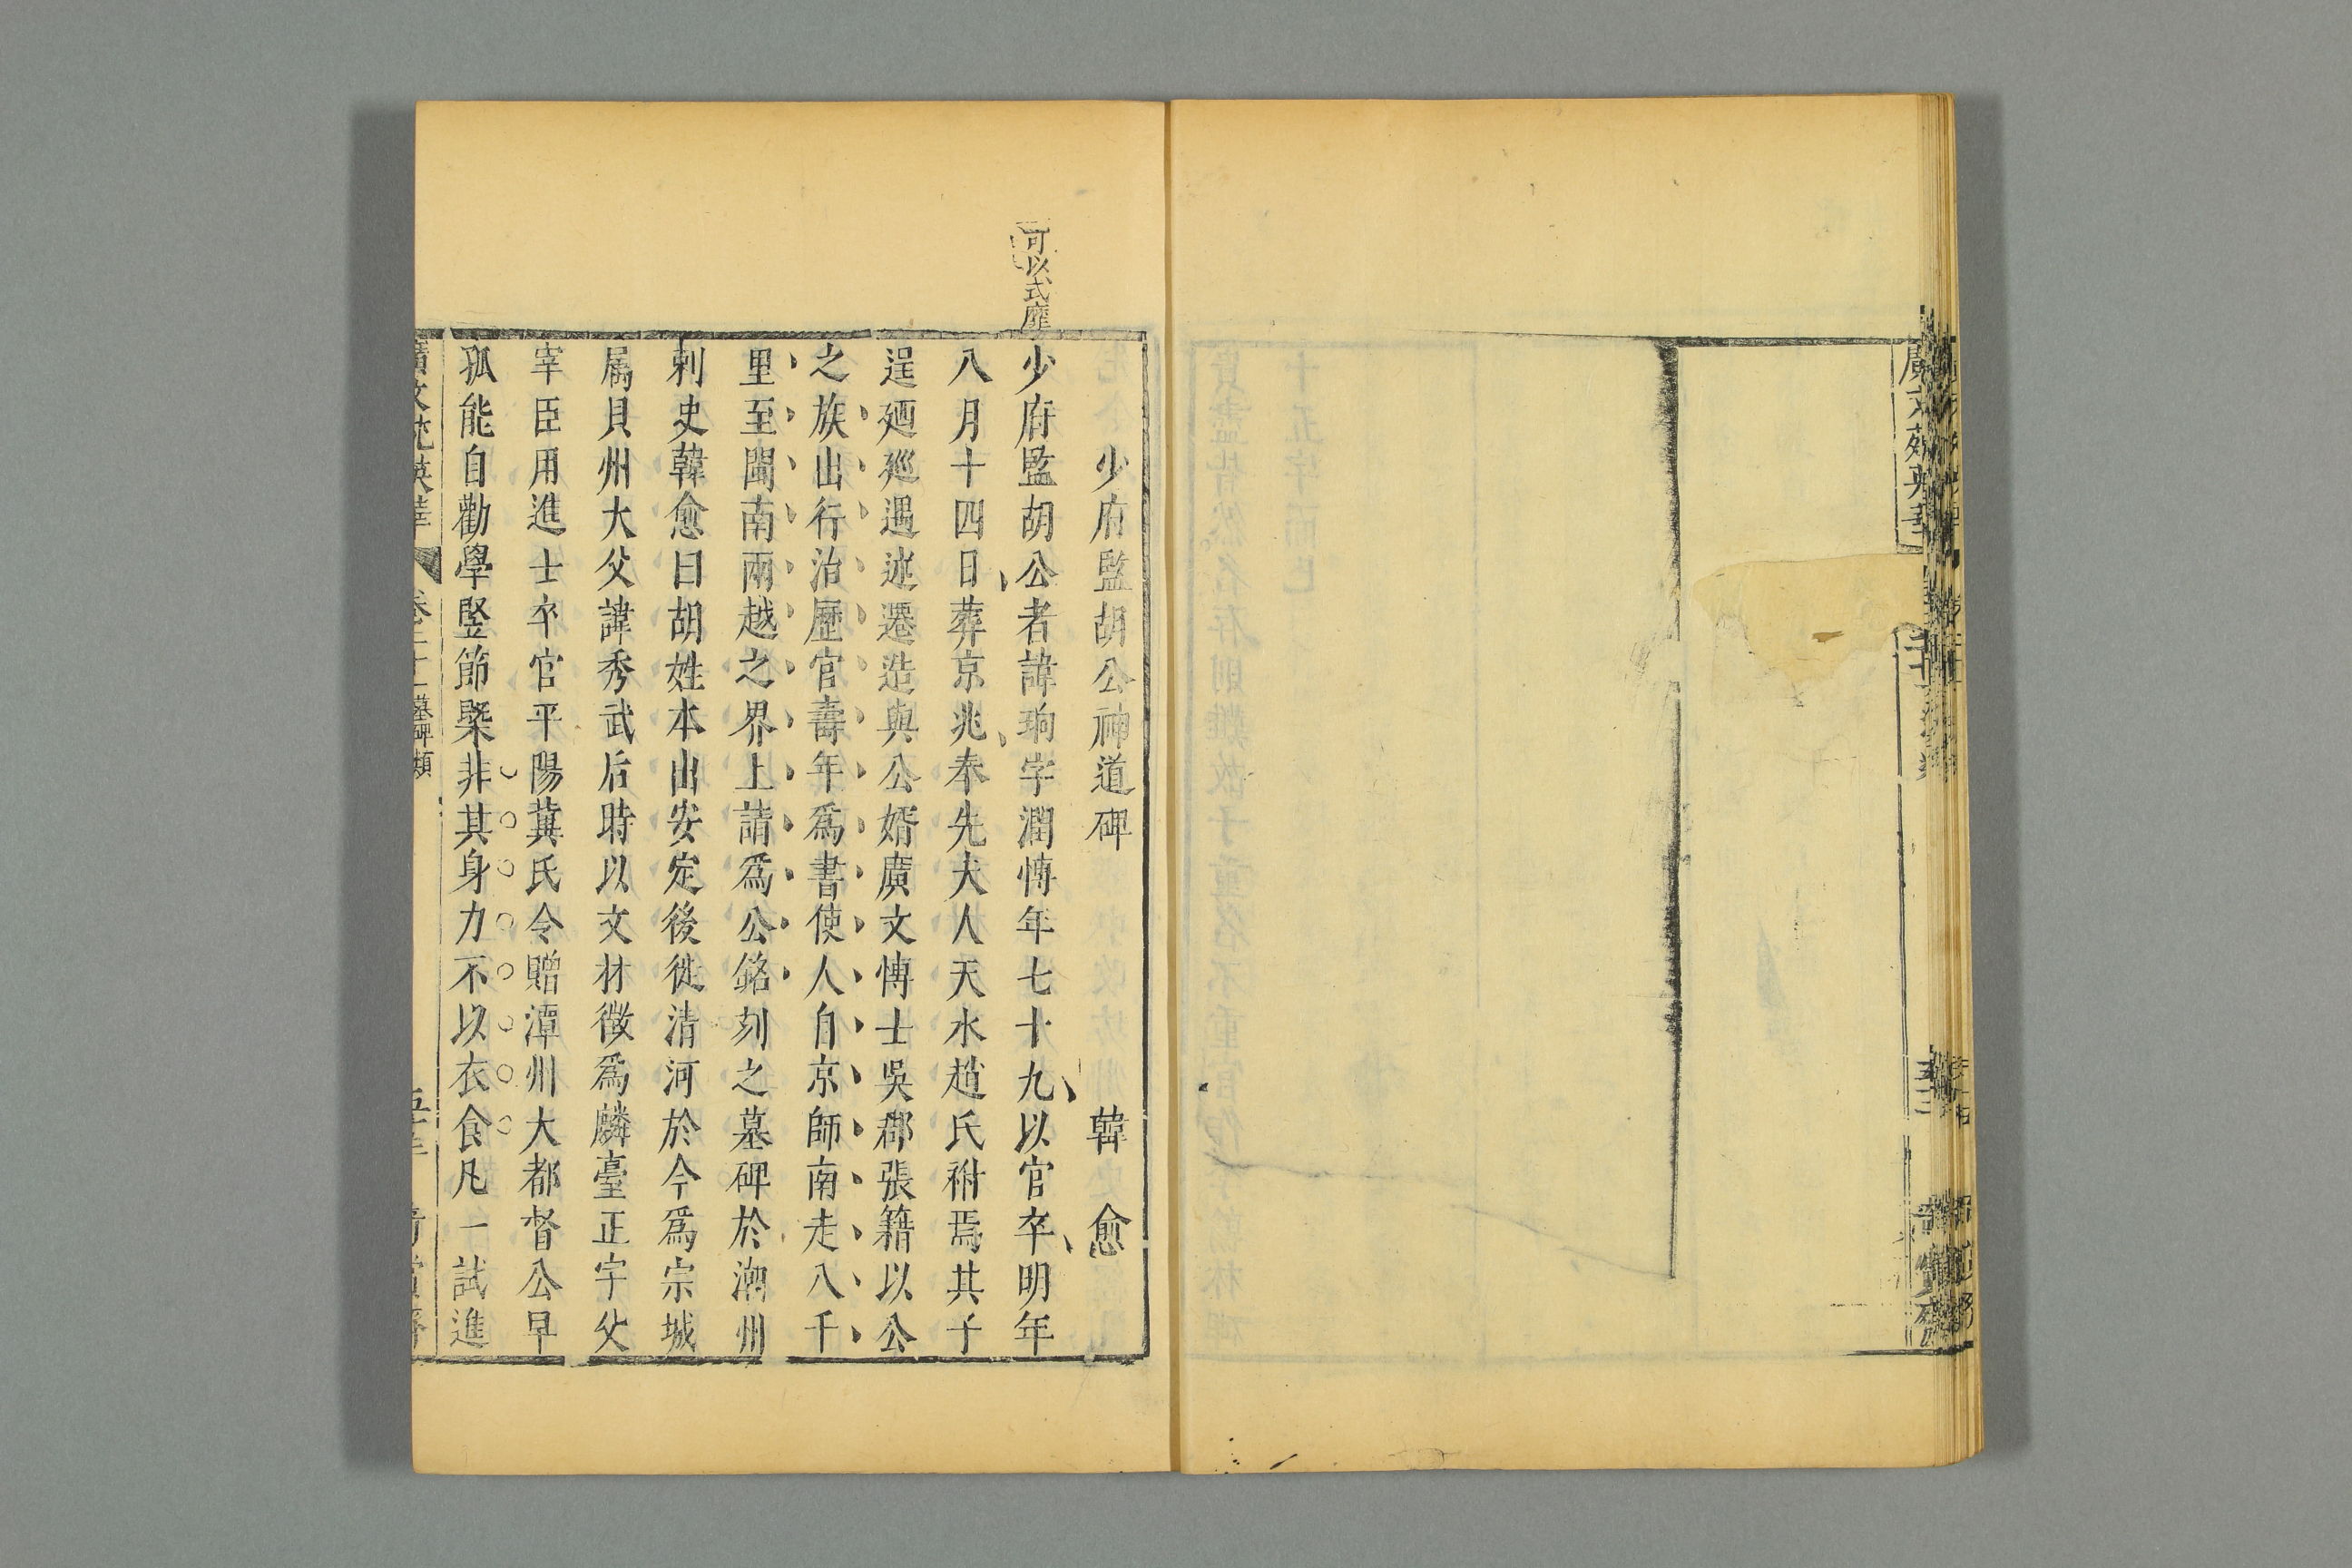 可以式靡
少府監胡公神道碑 韓愈
少府監胡公者諱珦字潤愽年七十九以官卒明年
八月十四日葬京兆奉先夫人天水趙氏祔焉其子
逞廼廵遇述遷造與公婿廣文愽士吳郡張籍以公
之族出行治歷官壽年爲書使人自京師南走八千
里至閩南兩越之界上請爲公銘刻之墓碑於潮州
刺史韓愈曰胡姓本出安定後徙清河於今爲宗城
属貝州大父諱秀武后時以文材徵爲麟臺正字父
宰臣用進士卒官平陽冀氏令贈潭州大都督公早
孤能自勸學竪節槩非其身力不以衣食凡一試進
廣文苑英華 卷二十一 墓碑類